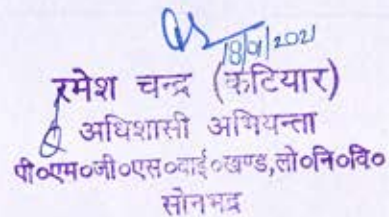 18/01/2021
रमेश चन्द्र (कटियार)
अधिशासी अभियन्ता
पी०एम०जी०एस०वाई०खण्ड,लो०नि०वि०
सोनभद्र